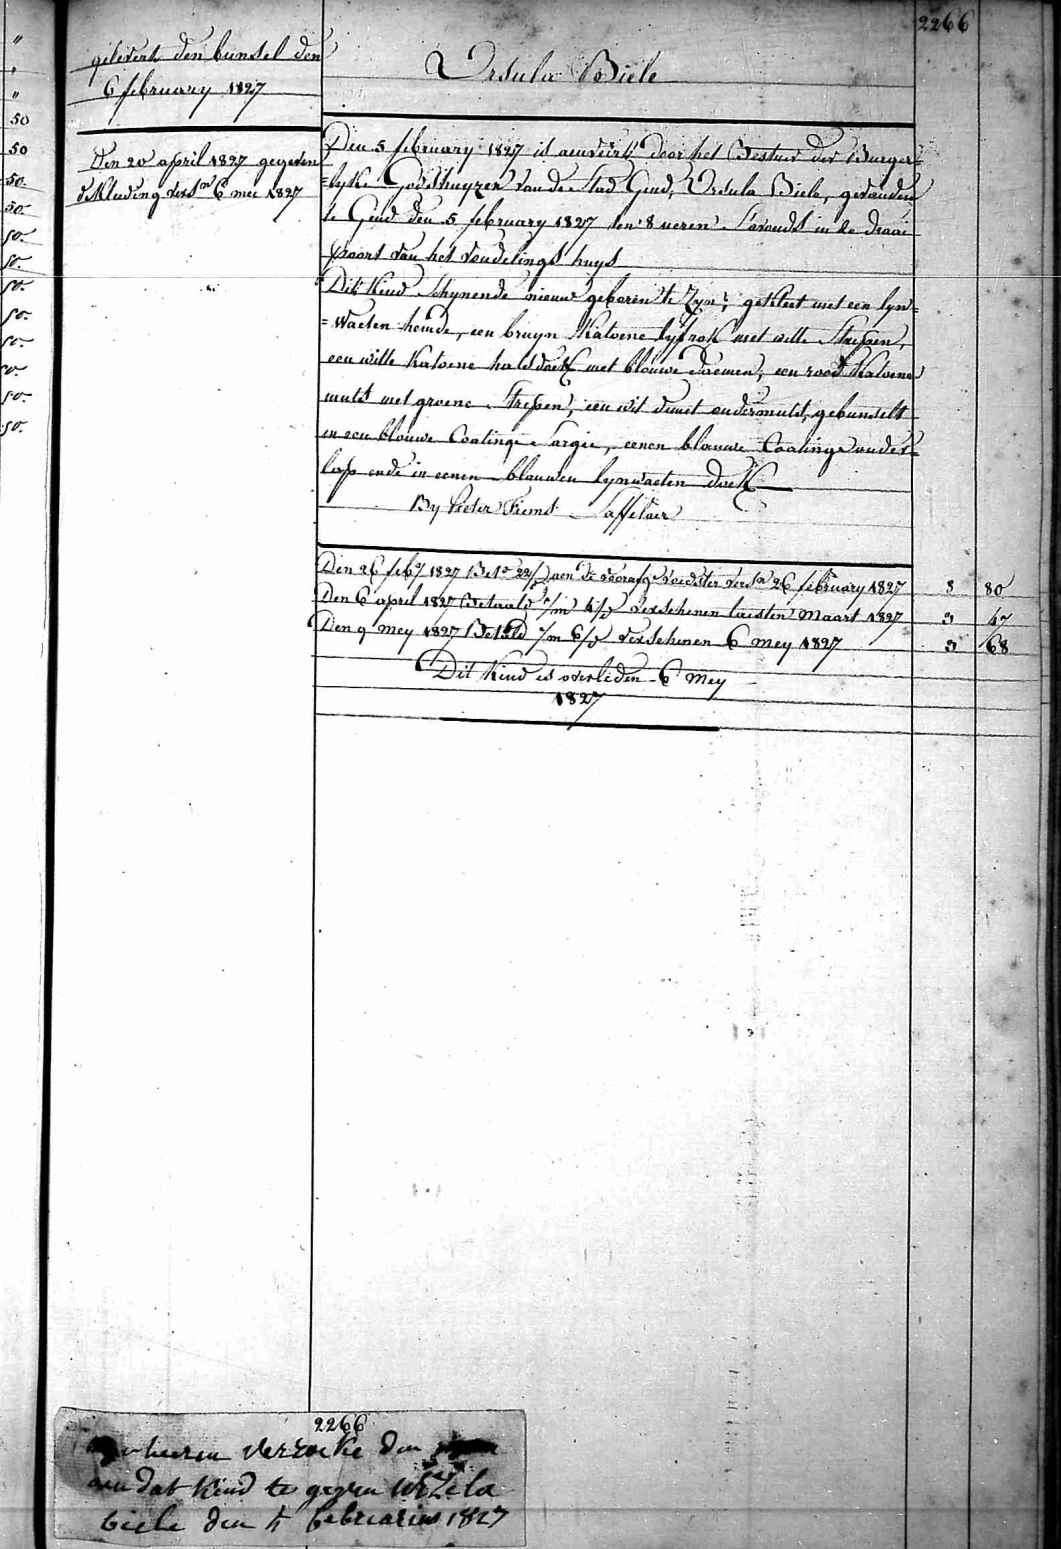 2266
gelevert den bunsel den
6 february 1827
Den 20 april 1827 gegeven
de kleeding 6 mei 1827
Ursula Biele
Den 5 february 1827 is aenveird door het Bestuur der Burger=
=lyke Godshuyzen van de Stad Gend, Ursula Biele, gevonden
te Gend den 5 february 1827 ten 8 ueren s'avonds in de draai
poort van het vondelings huys
Dit kind schynende nieuw geboren te zyn, gekleet met een lyn=
=waeten hemde, een bruyn katoene lyfrok met witte strepen,
een witte katoene halsdoek met blouwe bloemen, een rood katoene
muts met groene strepen, een wit demit ondermuts, gebunselt
in een blouwe Coatinge sargie, eenen blouwe Coatinge onder=
lap ende in eenen blauwen lynwaeten doek
By Pieter Fiems Saffelaer
Den 26 feb.y 1827 Bet.e 22/ aen de voedster 26 february 1827 3 80
Den 6 april 1827 Betaald verschenen laesten Maart 1827 3 47
Den 9 mey 1827 Betald verschenen 6 mey 1827 3 68
Dit kind is overleden 6 mey
1827
"
"
50
50
50.
50.
50.
50.
50.
50.
50.
50.
50.
50.
2266
heeren versoeke den
aen dat kind te geven
biele den februarius 1827